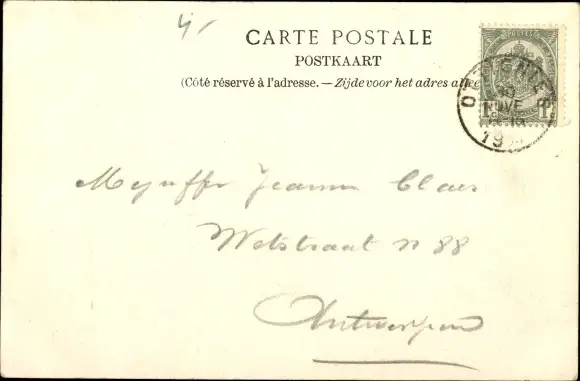 4
CARTE POSTALE
POSTKAART
(Côté réservé à l'adresse. — Zijde voor het adres allee
POSTES
OTTIGNIES
10
NOVE
19
Mejuffr Jeanne Claes
Wetstraat n 88
Antwerpen